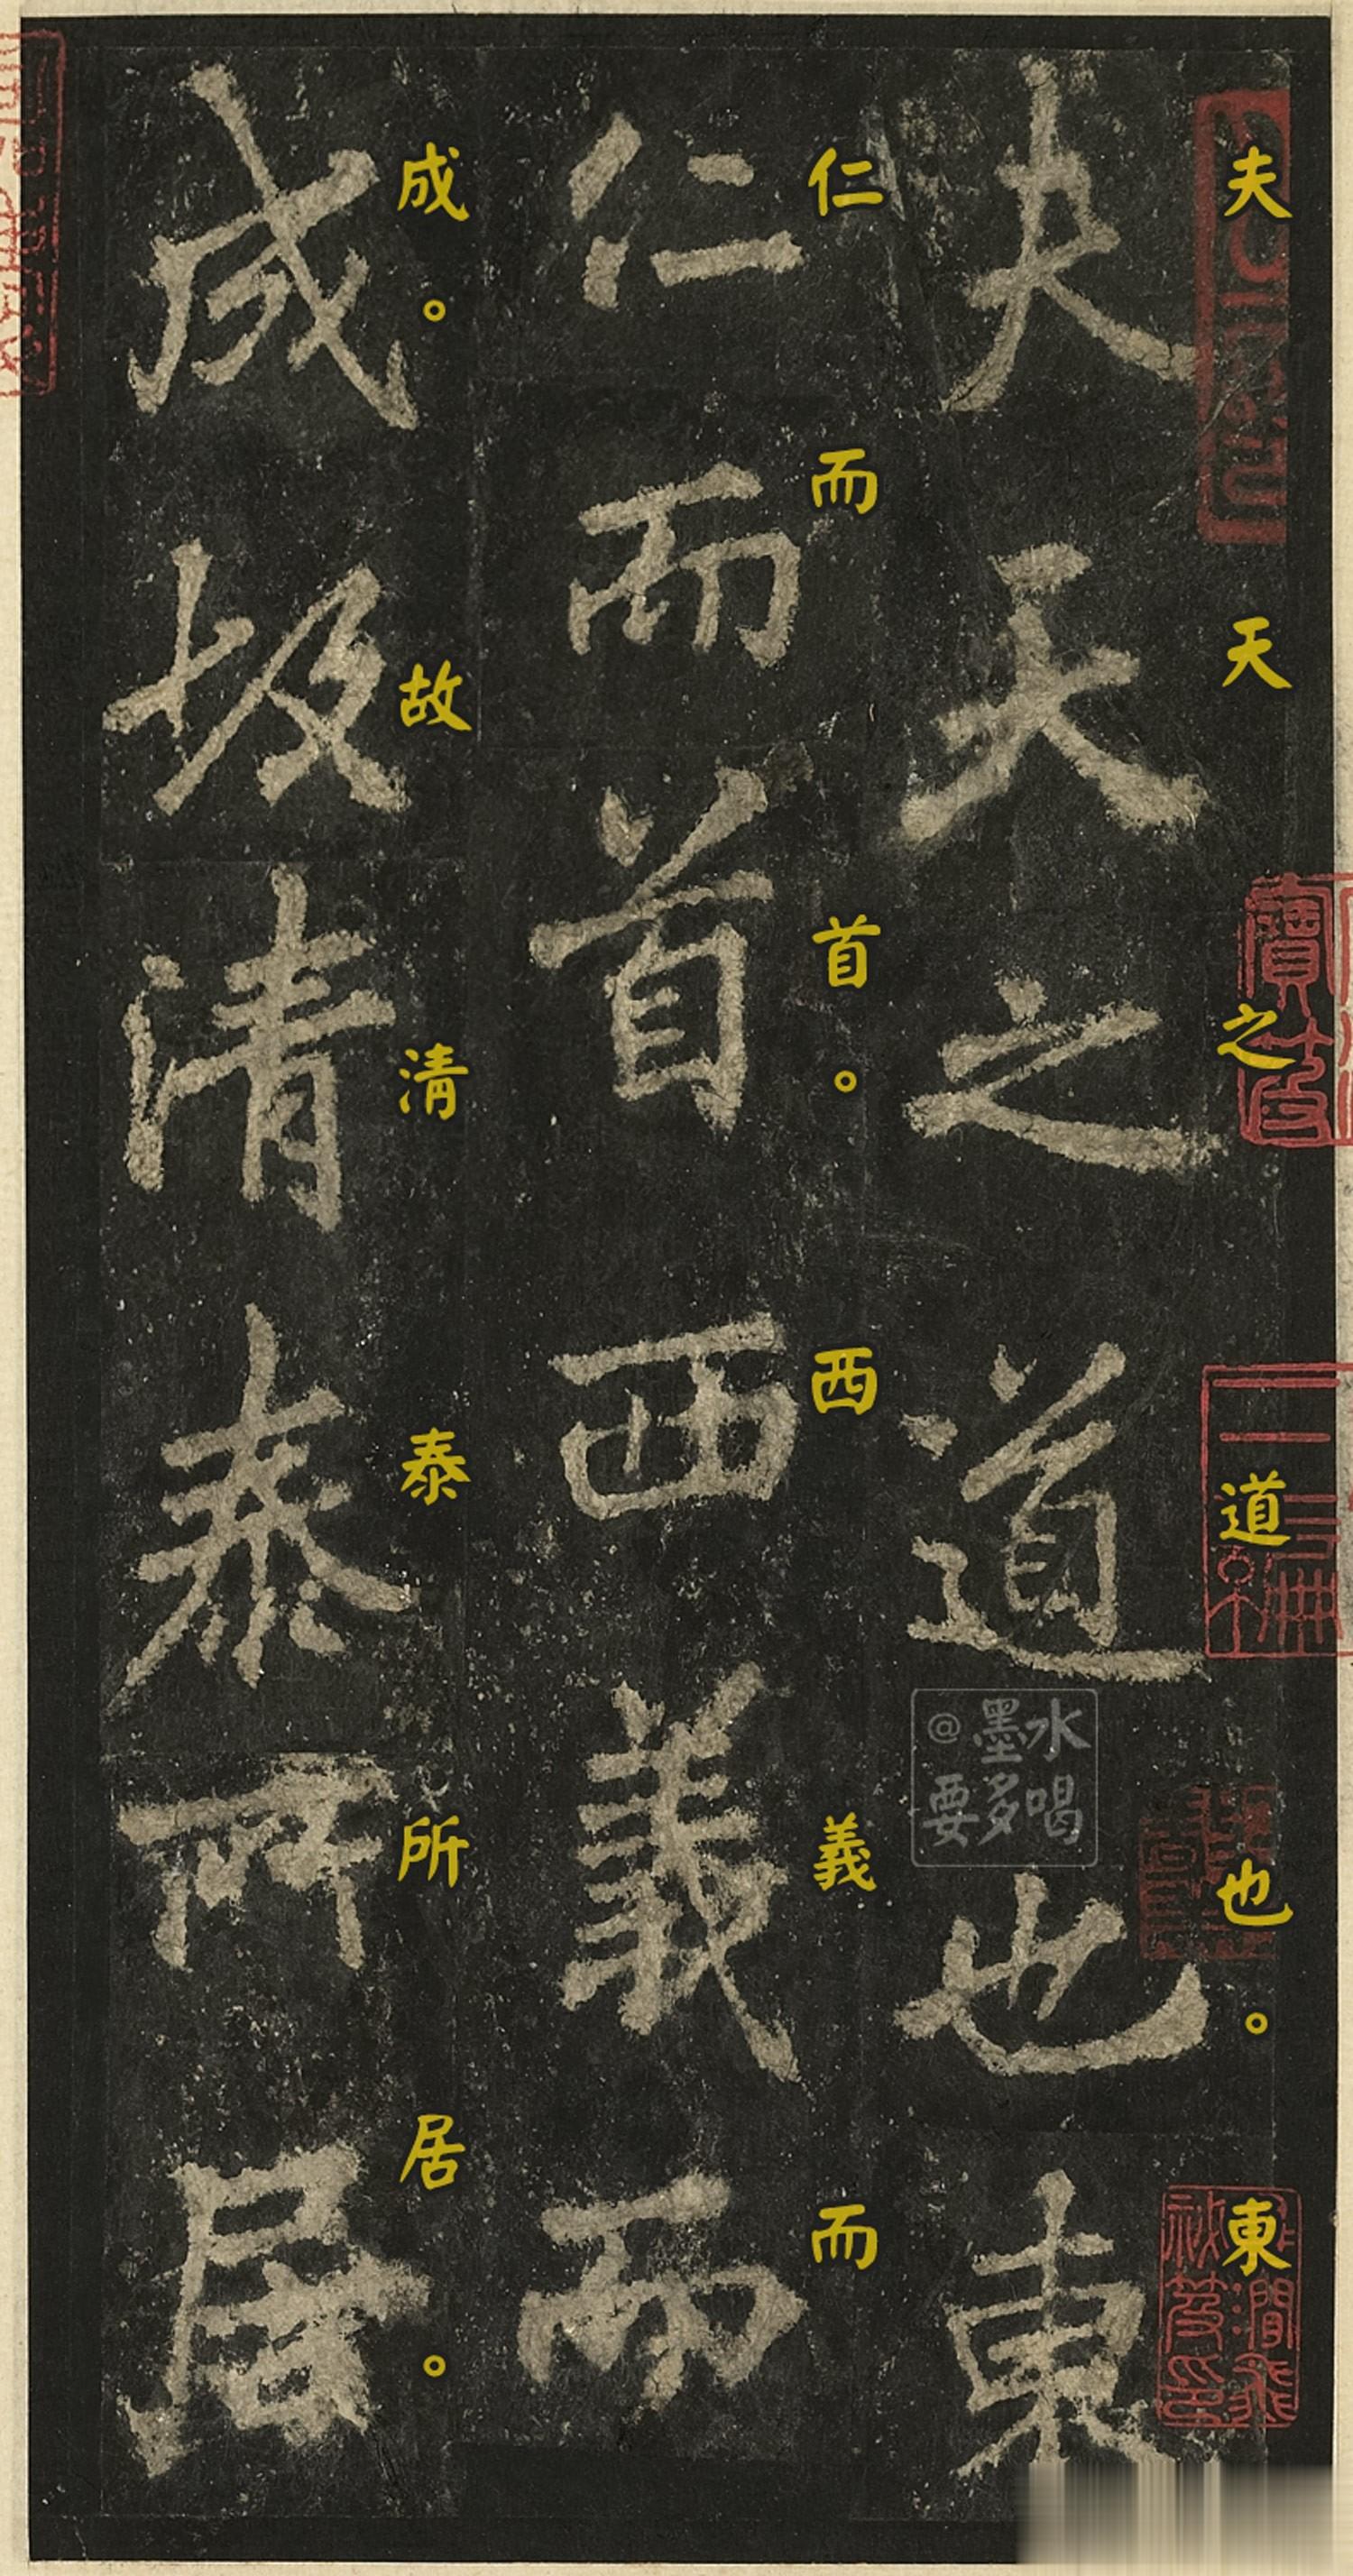 夫天之道也。東
仁而首。西義而
成。故清泰所居。
夫天之道也東
仁而首西義而
成故清泰所居
@墨水
要多喝